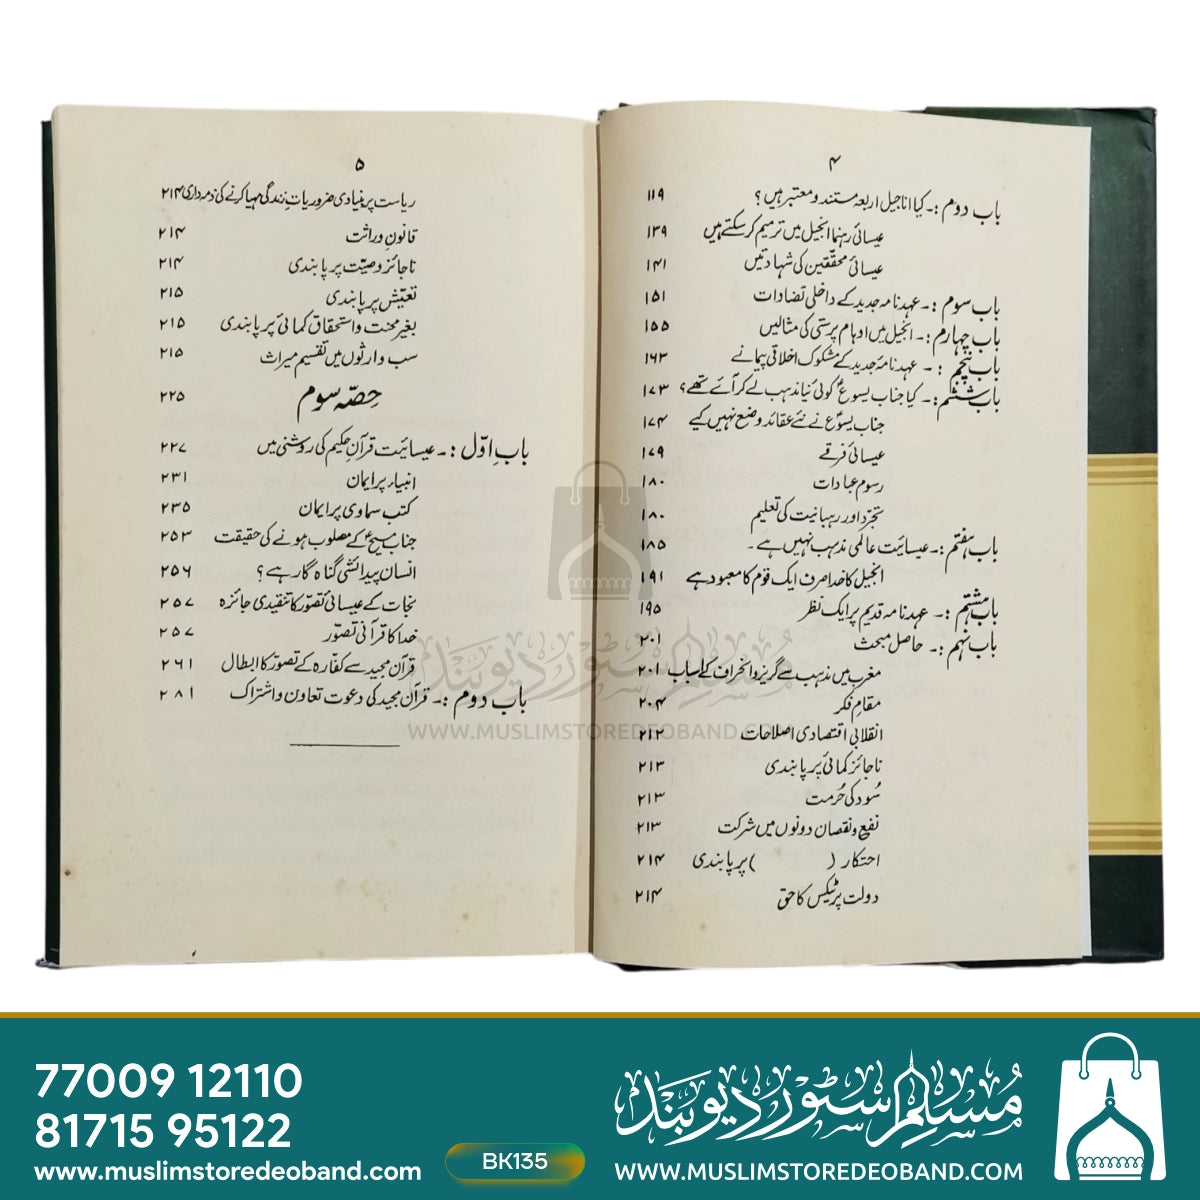 ۴
باب دوم :۔ کیا اناجیل اربعہ مستند و معتبر ہیں؟ ۱۱۹
عیسائی رہنما انجیل میں ترمیم کر سکتے ہیں ۱۳۹
عیسائی محققین کی شہادتیں ۱۴۱
باب سوم :۔ عہد نامہ جدید کے داخلی تضادات ۱۵۱
باب چہارم :۔ انجیل میں اوہام پرستی کی مثالیں ۱۵۵
باب پنجم :۔ عہد نامۂ جدید کے مشکوک اخلاقی پیمانے ۱۶۳
باب ششم :۔ کیا جناب یسوعؑ کوئی نیا مذہب لے کر آئے تھے؟ ۱۷۳
جناب یسوعؑ نے نئے عقائد وضع نہیں کیے ۱۷۴
عیسائی فرقے ۱۷۹
رسوم عبادات ۱۸۰
تجرّد اور رہبانیت کی تعلیم ۱۸۰
باب ہفتم :۔ عیسائیت عالمی مذہب نہیں ہے۔ ۱۸۵
انجیل کا خدا صرف ایک قوم کا معبود ہے ۱۹۱
باب ہشتم :۔ عہد نامہ قدیم پر ایک نظر ۱۹۵
باب نہم :۔ حاصل مبحث ۲۰۱
مغرب میں مذہب سے گریز و انحراف کے اسباب ۲۰۱
مقامِ فکر ۲۰۴
انقلابی اقتصادی اصلاحات ۲۱۲
ناجائز کمائی پر پابندی ۲۱۳
سُود کی حُرمت ۲۱۳
نفع و نقصان دونوں میں شرکت ۲۱۳
احتکار ( ) پر پابندی ۲۱۴
دولت پر ٹیکس کا حق ۲۱۴
۵
ریاست پر بنیادی ضروریاتِ زندگی مہیا کرنے کی ذمہ داری ۲۱۴
قانونِ وراثت ۲۱۴
ناجائز وصیّت پر پابندی ۲۱۴
تعیّش پر پابندی ۲۱۵
بغیر محنت و استحقاق کمائی پر پابندی ۲۱۵
سب وارثوں میں تقسیم میراث ۲۱۵
حصّہ سوم ۲۲۵
بابِ اوّل :۔ عیسائیت قرآنِ حکیم کی روشنی میں ۲۲۷
انبیاء پر ایمان ۲۳۱
کتب سماوی پر ایمان ۲۳۵
جناب مسیحؑ کے مصلوب ہونے کی حقیقت ۲۵۳
انسان پیدائشی گناہ گار ہے؟ ۲۵۶
نجات کے عیسائی تصوّر کا تنقیدی جائزہ ۲۵۷
خدا کا قرآنی تصوّر ۲۵۷
قرآن مجید سے کفارہ کے تصوّر کا ابطال ۲۶۱
باب دوم :۔ قرآن مجید کی دعوت تعاون و اشتراک ۲۸۱
مسلم سٹور دیوبند
WWW.MUSLIMSTOREDEOBAND.COM
77009 12110
81715 95122
www.muslimstoredeoband.com
BK135
مسلم سٹور دیوبند
WWW.MUSLIMSTOREDEOBAND.COM